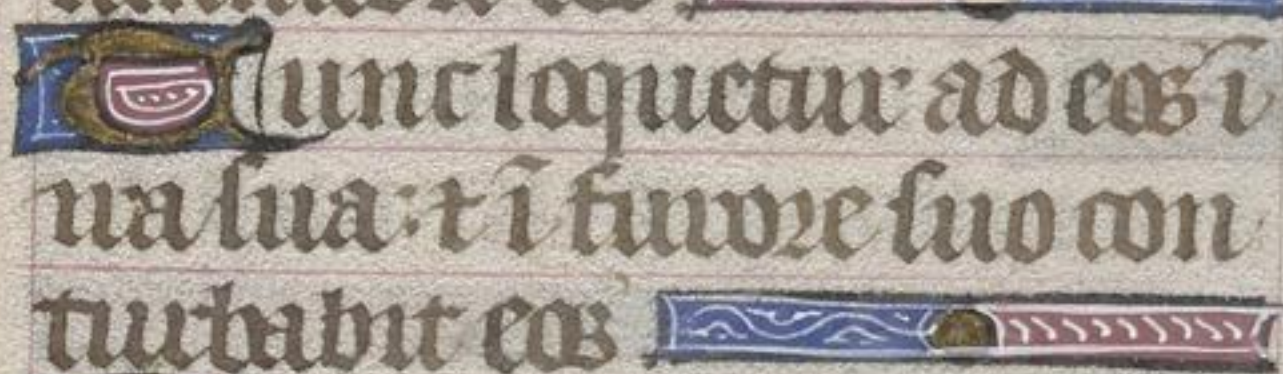 Tunc loquetur ad eos ī
ira sua: ⁊ ī furore suo con
turbabit eos